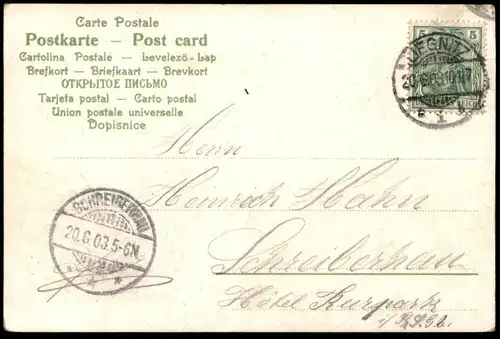 Carte Postale
Postkarte – Post card
Cartolina Postale – Levelező-Lap
Brefkort – Briefkaart – Brevkort
ОТКРЫТОЕ ПИСЬМО
Tarjeta postal – Carto postal
Union postale universelle
Dopisnice
5 5
LIEGNITZ
20.6.03.10-11V
1
REICH
Herrn
Heinrich Hahn
Schreiberhau
Hôtel Kurpark
i/ R.S.Gb.
SCHREIBERHAU
20.6.03.5-6N.